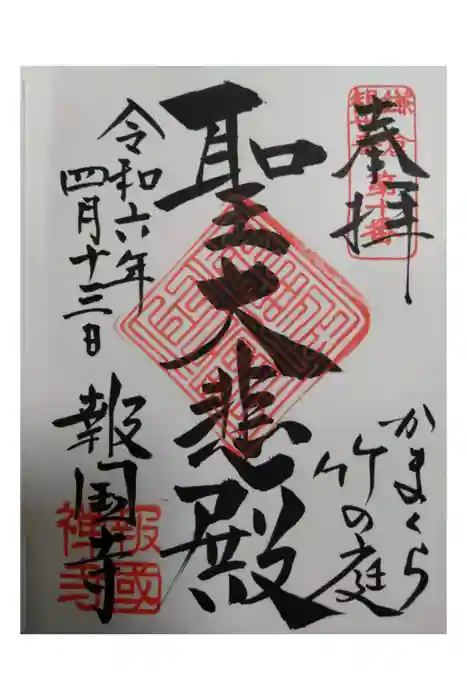 奉拝
かまくら
竹の庭
聖大悲殿
令和六年
四月十三日
報国寺
報國
禅寺